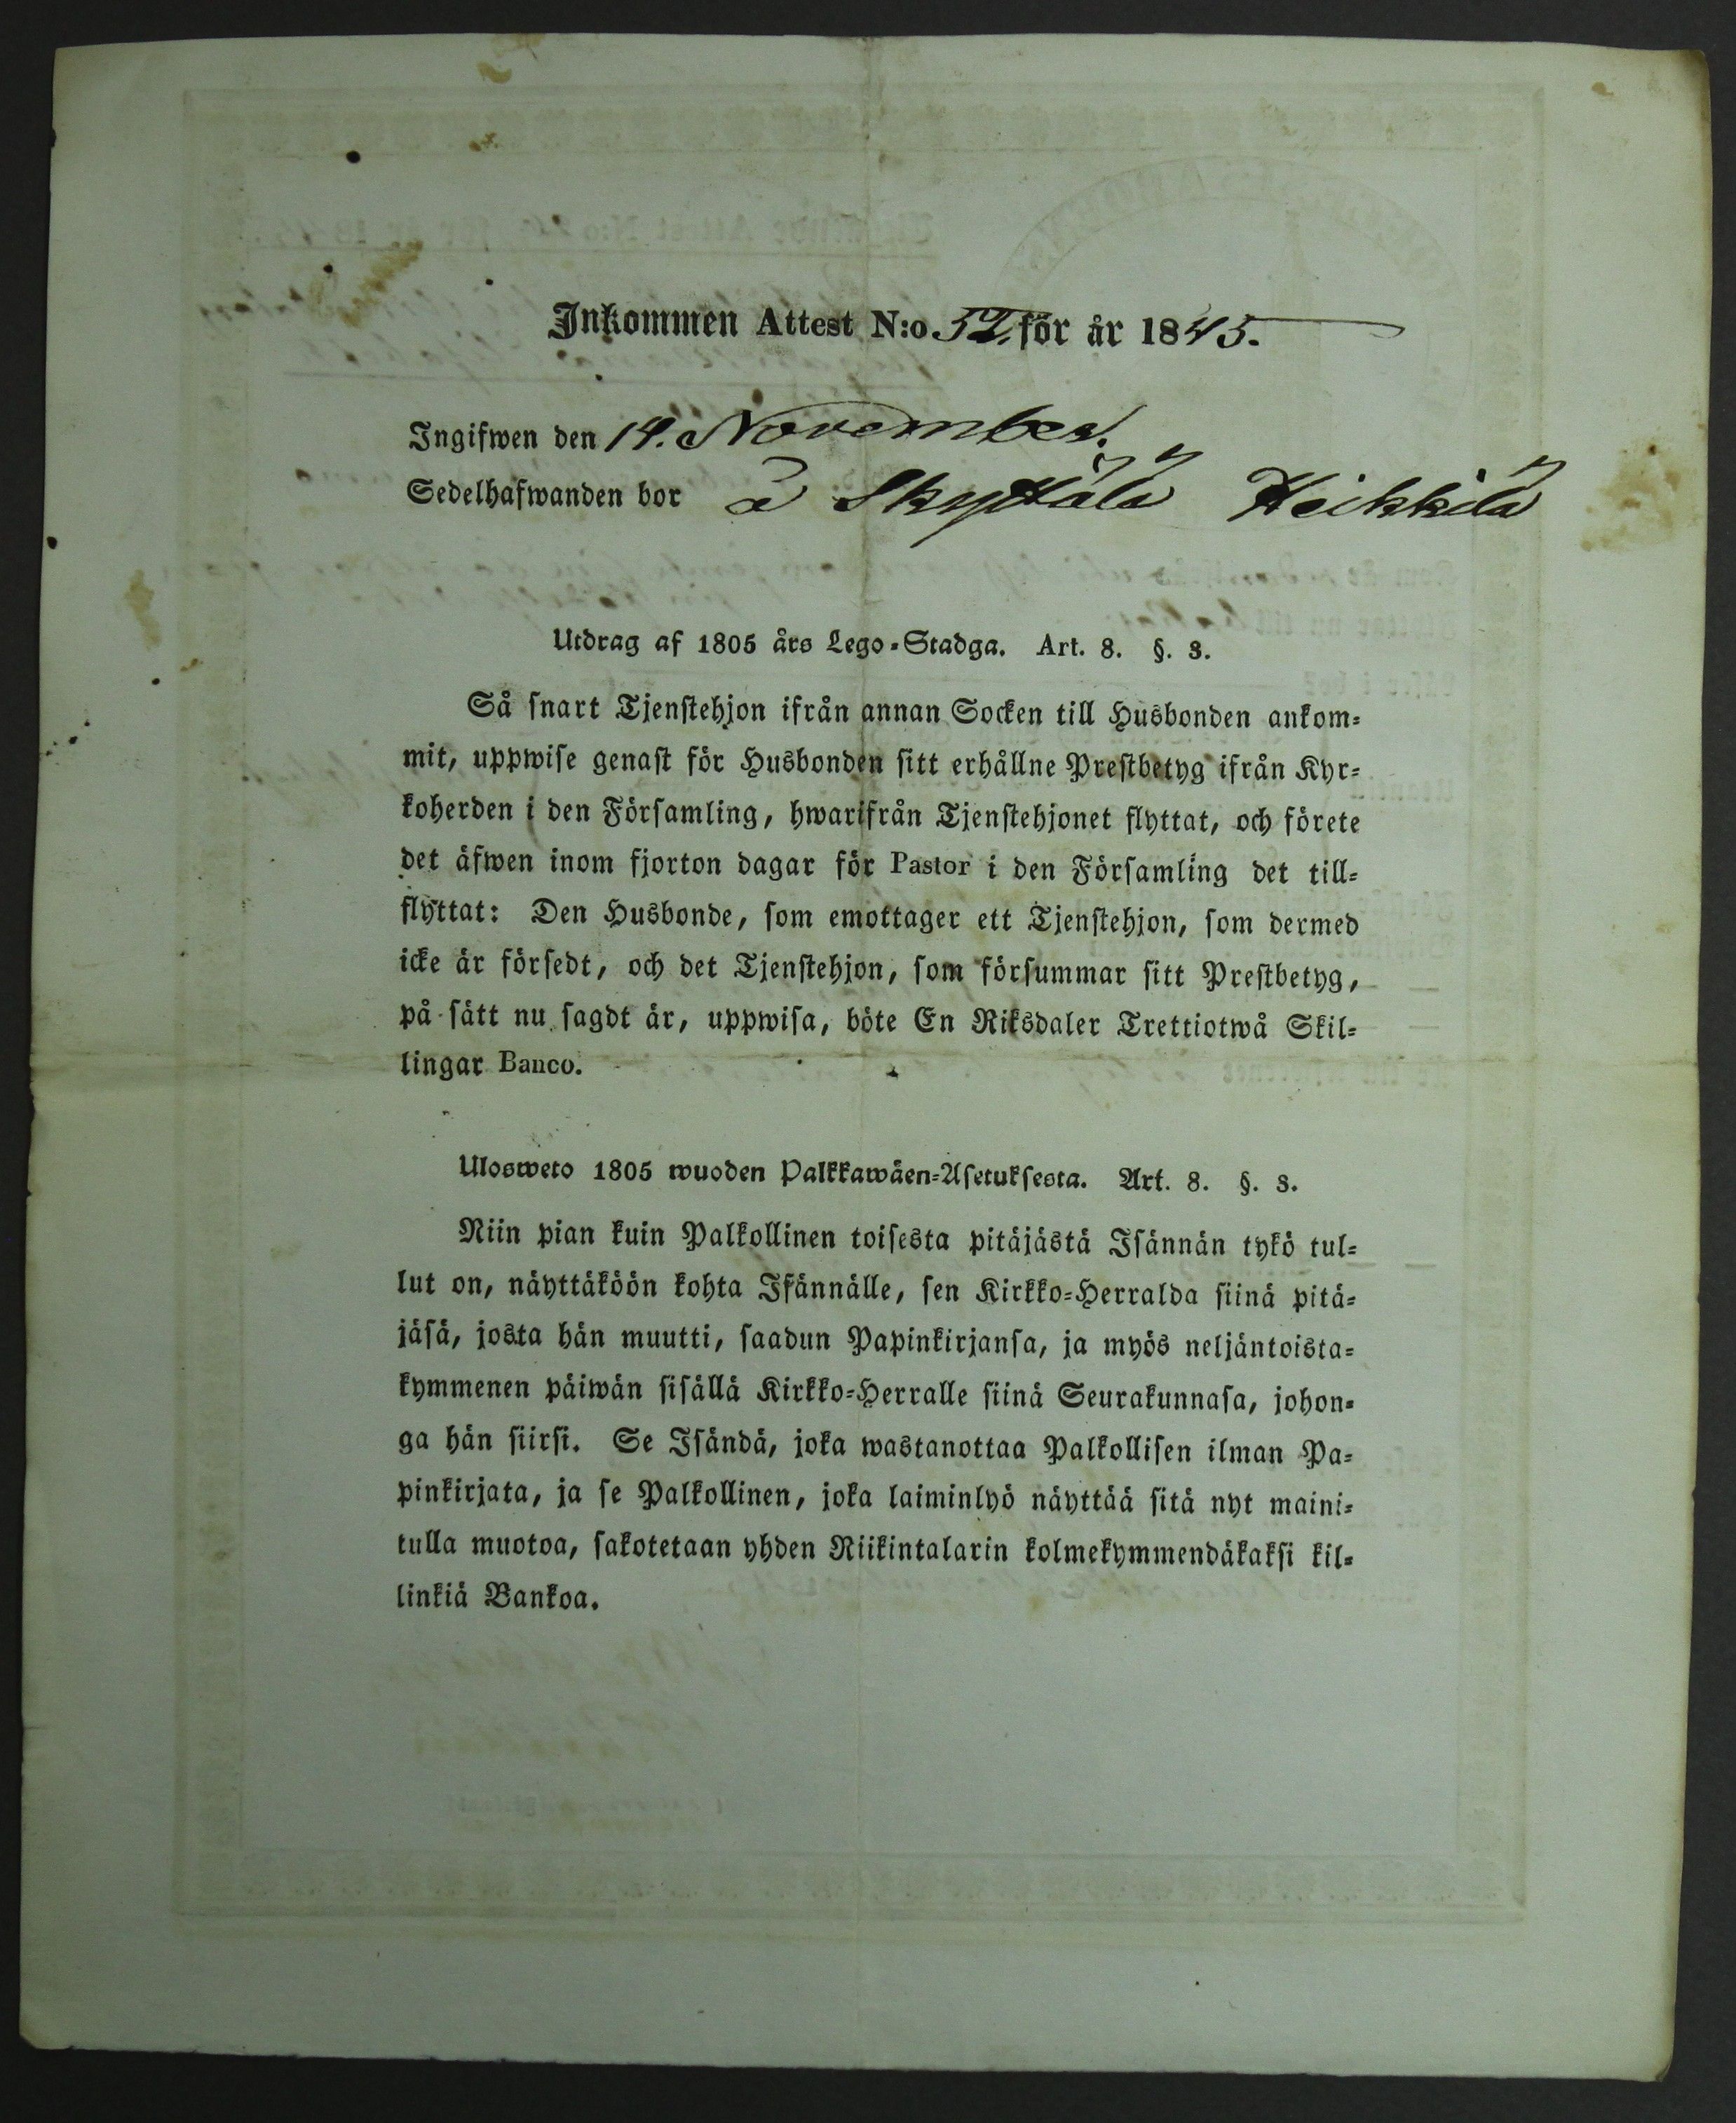 Inkommen Attest N:o. 52. för år 1845.
Ingifwen den 14. November.
Sedelhafwanden bor å Skyttälä Heikkilä
Utdrag af 1805 års Lego-Stadga. Art. 8. §. 3.
Så snart Tjenstehjon ifrån annan Socken till Husbonden ankom-
mit, uppwise genast för Husbonden sitt erhållne Prestbetyg ifrån Kyr-
koherden i den Församling, hwarifrån Tjenstehjonet flyttat, och förete
det äfwen inom fjorton dagar för Pastor i den Församling det till-
flyttat: Den Husbonde, som emottager ett Tjenstehjon, som dermed
icke är försedt, och det Tjenstehjon, som försummar sitt Prestbetyg,
på sätt nu sagdt är, uppwisa, böte En Riksdaler Trettiotwå Skil-
lingar Banco.
Ulosweto 1805 wuoden Palkkawäen-Asetuksesta. Art. 8. §. 3.
Niin pian kuin Palkollinen toisesta pitäjästä Isännän tykö tul-
lut on, näyttäköön kohta Isännälle, sen Kirkko-Herralda siinä pitä-
jäsä, josta hän muutti, saadun Papinkirjansa, ja myös neljäntoista-
kymmenen päiwän sisällä Kirkko-Herralle siinä Seurakunnasa, johon-
ga hän siirsi. Se Isändä, joka wastanottaa Palkollisen ilman Pa-
pinkirjata, ja se Palkollinen, joka laiminlyö näyttää sitä nyt maini-
tulla muotoa, sakotetaan yhden Riikintalarin kolmekymmendäkaksi kil-
linkiä Bankoa.